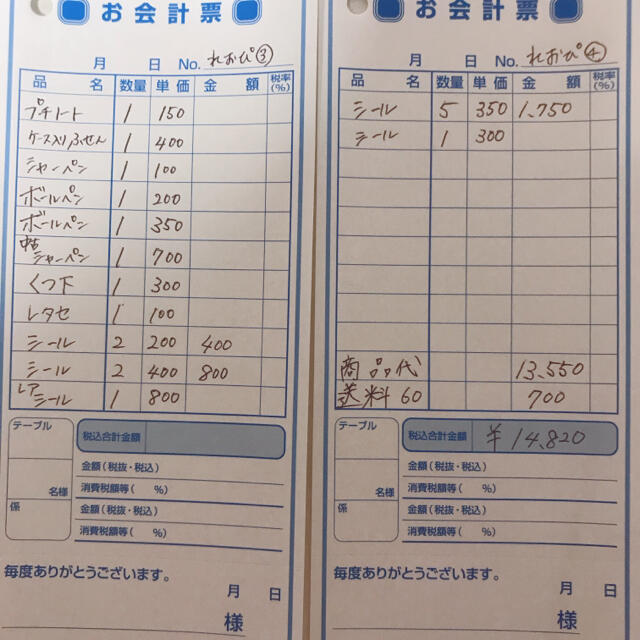 お会計票
月 日 No. れおぴ③
品名 数量 単価 金額 税率(%)
プチノート 1 150
ケース入りふせん 1 400
シャーペン 1 100
ボールペン 1 200
ボールペン 1 350
中古シャーペン 1 700
くつ下 1 300
レタセ 1 100
シール 2 200 400
シール 2 400 800
レアシール 1 800
テーブル
名様
係
税込合計金額
金額(税抜・税込)
消費税額等( %)
金額(税抜・税込)
消費税額等( %)
毎度ありがとうございます。
月 日
様
お会計票
月 日 No. れおぴ④
品名 数量 単価 金額 税率(%)
シール 5 350 1,750
シール 1 300
商品代 13,550
送料60 700
テーブル
名様
係
税込合計金額 ¥14,820
金額(税抜・税込)
消費税額等( %)
金額(税抜・税込)
消費税額等( %)
毎度ありがとうございます。
月 日
様